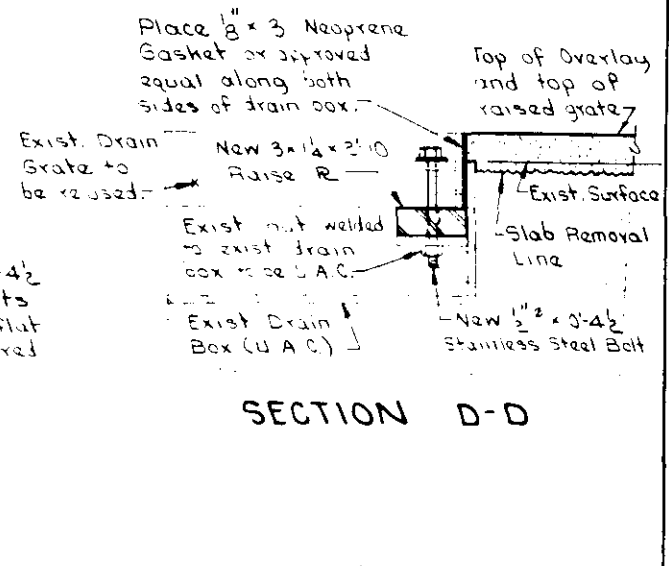 Place 1/8" x 3 Neoprene
Gasket or approved
equal along both
sides of drain box.
Top of Overlay
and top of
raised grate
Exist. Drain
Grate to
be reused.
New 3 x 1 1/4 x 2'-10
Raise PL
Exist. Surface
Exist nut welded
to exist drain
box to be U.A.C.
Slab Removal
Line
-4 1/2
ts
flat
red
Exist Drain
Box (U.A.C.)
New 1/2" x 0'-4 1/2
Stainless Steel Bolt
SECTION D-D